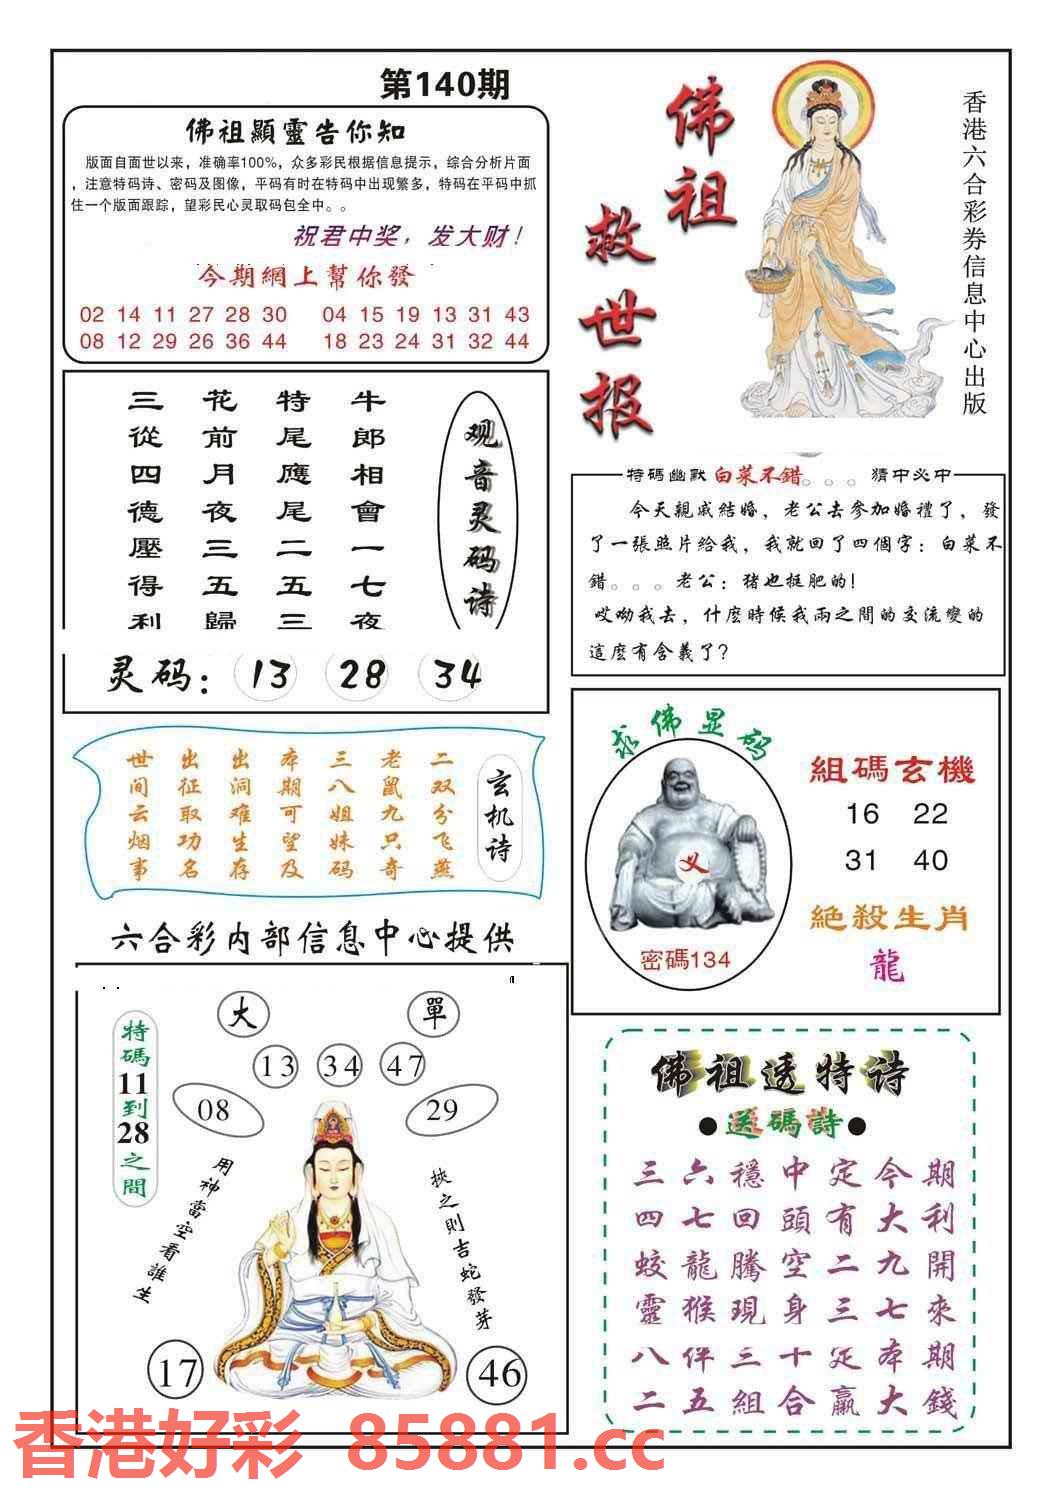 第140期
佛祖顯靈告你知
版面自面世以来，准确率100%，众多彩民根据信息提示，综合分析片面
，注意特码诗、密码及图像，平码有时在特码中出现繁多，特码在平码中抓
住一个版面跟踪，望彩民心灵取码包全中。。
祝君中奖，发大财！
今期網上幫你發
02 14 11 27 28 30 04 15 19 13 31 43
08 12 29 26 36 44 18 23 24 31 32 44
佛祖
救世报
香港六合彩券信息中心出版
观音灵码诗
牛郎相會一七夜
特尾應尾二五三
花前月夜三五歸
三從四德壓得利
灵码： 13 28 34
特碼幽默 白菜不错。。。猜中必中
今天親戚結婚，老公去參加婚禮了，發
了一張照片給我，我就回了四個字：白菜不
錯。。。老公：猪也挺肥的！
哎呦我去，什麽時候我兩之間的交流變的
這麽有含義了？
玄机诗
二双分飞燕
老鼠九只奇
三八姐妹码
本期可望及
出洞难生存
出征取功名
世间云烟事
求佛显码
义
密碼134
組碼玄機
16 22
31 40
絕殺生肖
龍
六合彩内部信息中心提供
特碼11到28之間
大 單
13 34 47
08 29
用神當空看誰生
挾之則吉蛇發芽
17 46
佛祖透特诗
●送碼詩●
三六穩中定今期
四七回頭有大利
蛟龍騰空二九開
靈猴現身三七來
八伴三十定本期
二五組合贏大錢
香港好彩 85881.cc